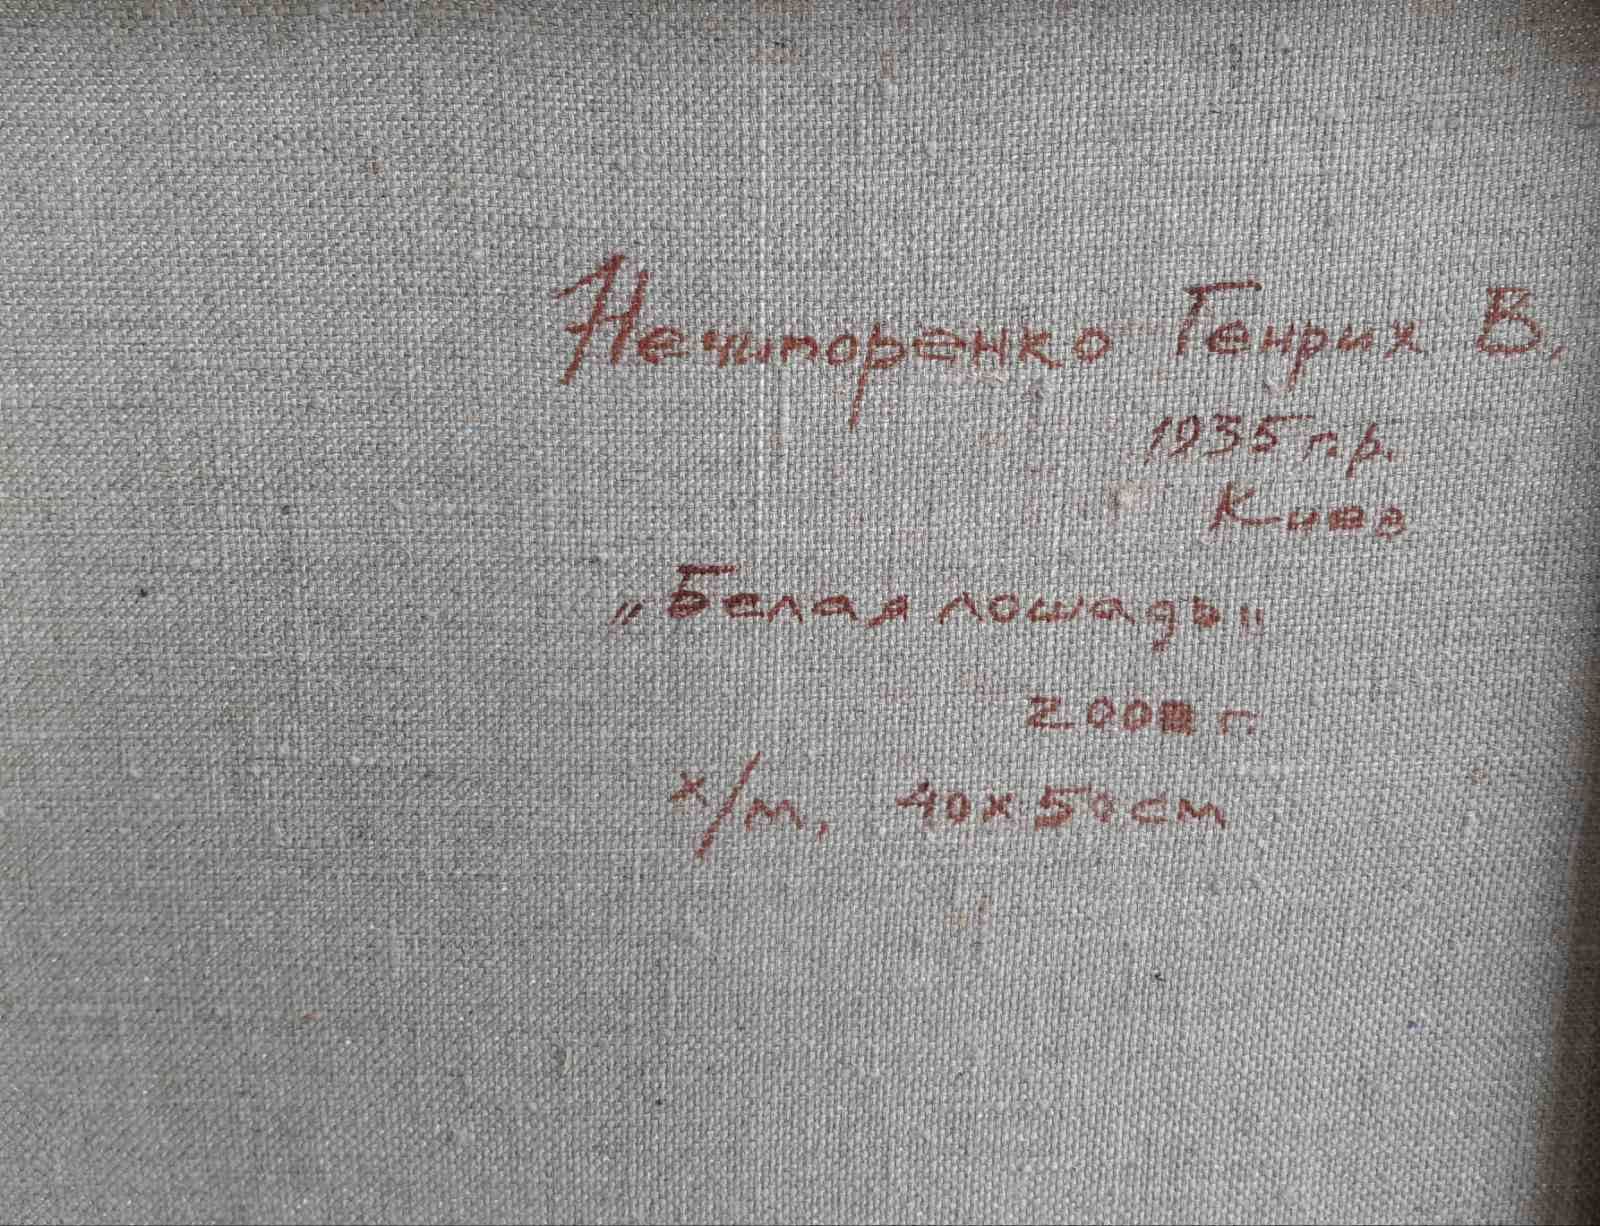 Нечипоренко Генрих В.
1935 г.р.
Киев
„Белая лошадь"
х/м, 40х50см